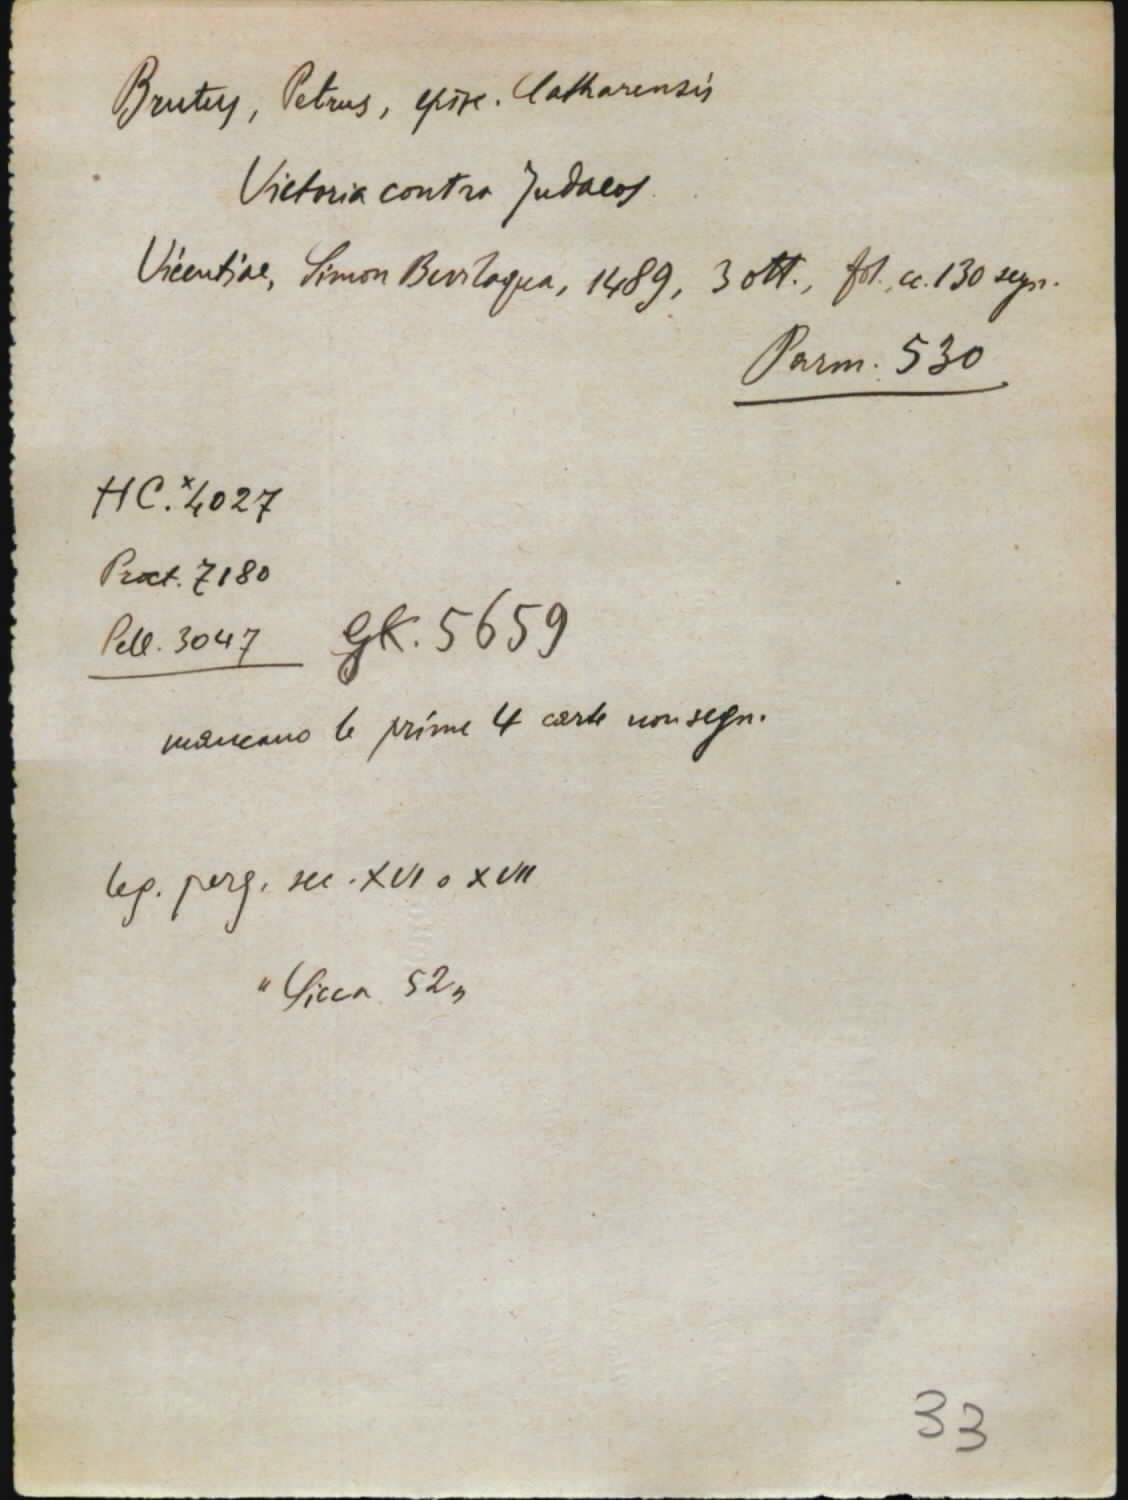 Brutus, Petrus, episc. Catharensis
Victoria contra Judaeos
Vicentiae, Simon Bevilaqua, 1489, 3 ott., fol., cc. 130 segn.
Parm. 530
HC.*4027
Proct. 7180
Pell. 3047 GK. 5659
mancano le prime 4 carte non segn.
leg. perg. sec. XVI o XVII
"Sicca 52"
33